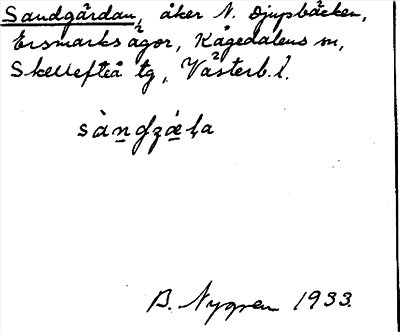 Sandgårdan, åker N. Djupbäcken,
Ersmarks ägor, Kågedalens sn,
Skellefteå tg, Västerb. l.
B. Nygren 1933.